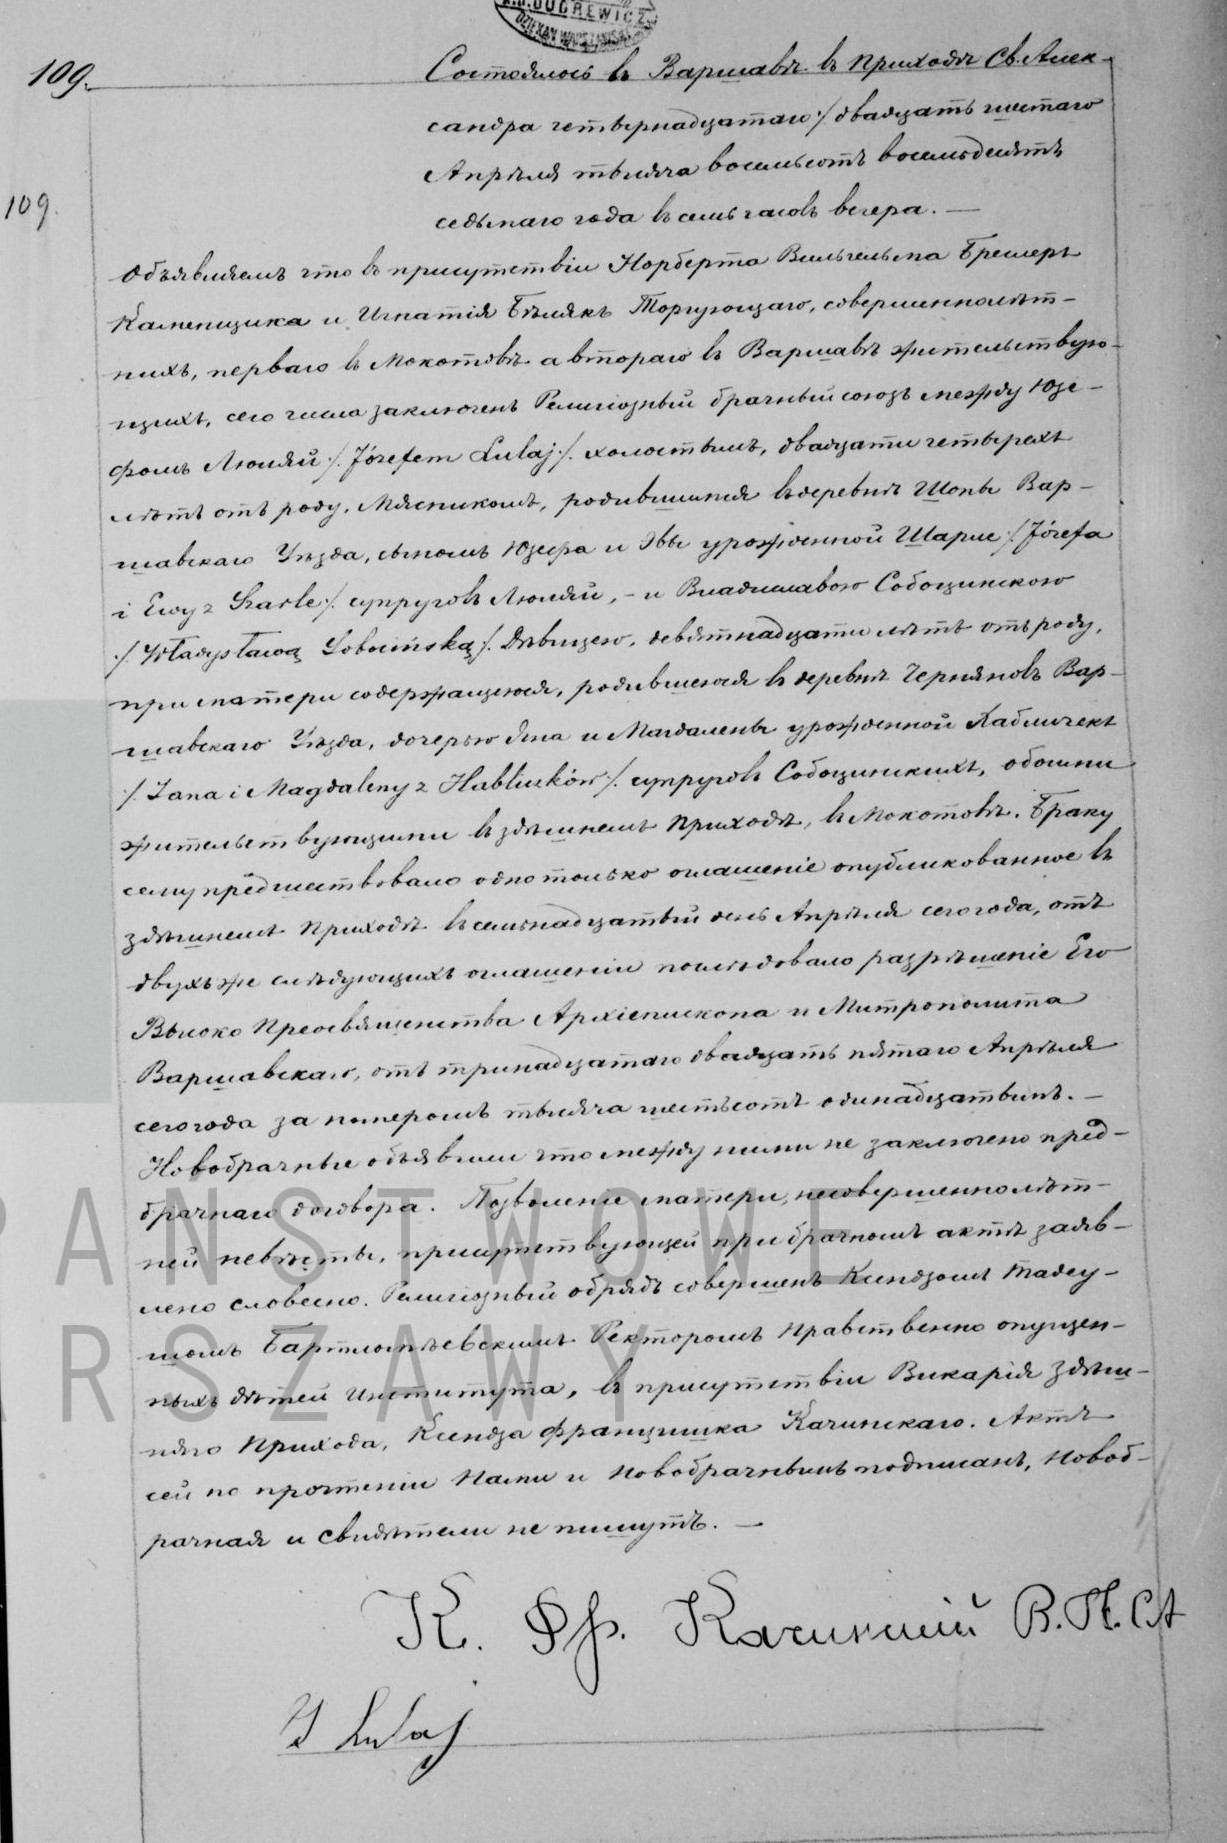 DUGREWICZ
DZIEKAN WARSZAWSKI
109.
Состоялось въ Варшавѣ въ Приходѣ Св. Алек-
сандра четырнадцатаго /. двадцать шестаго
Апрѣля тысяча восемьсотъ восемьдесятъ
седьмаго года въ семь часовъ вечера. —
109.
Объявляемъ что въ присутствіи Норберта Вильгельма Бремеръ
Каменщика и Игнатія Бѣлякъ Торгующаго, совершеннолѣт-
нихъ, перваго въ Мокотовѣ а втораго въ Варшавѣ жительствую-
щихъ, сего числа заключенъ Религіозный брачный союзъ между Юзе-
фомъ Люляй /. Józefem Lulaj ./. холостымъ, двадцати четырехъ
лѣтъ отъ роду, Мясникомъ, родившимся въ деревнѣ Шопы Вар-
шавскаго Уѣзда, сыномъ Юзефа и Эвы урожденной Шарле /. Józefa
i Ewy z Szarle ./. супруговъ Люляй, - и Владиславою Собоцинскою
./. Władysławą Sobocińską ./. Дѣвицею, девятнадцати лѣтъ отъ роду,
при матери содержащеюся, родившеюся въ деревнѣ Черняковъ Вар-
шавскаго Уѣзда, дочерью Яна и Магдалены урожденной Хабличекъ
./. Jana i Magdaleny z Habliczków ./. супруговъ Собоцинскихъ, обоими
жительствующими въ здѣшнемъ Приходѣ, въ Мокотовѣ. Браку
сему предшествовало одно только оглашеніе опубликованное въ
здѣшнемъ Приходѣ въ семнадцатый день Апрѣля сего года, отъ
двухъ же слѣдующихъ оглашеніи послѣдовало разрѣшеніе Его
Высоко Преосвященства Архіепископа и Митрополита
Варшавскаго, отъ тринадцатаго двадцать пятаго Апрѣля
сего года за номеромъ тысяча шестьсотъ одинадцатымъ. —
Новобрачные объявили что между ними не заключено пред-
брачнаго договора. Позволеніе матери, несовершеннолѣт-
ней невѣсты, присутствующей при брачномъ актѣ заяв-
лено словесно. Религіозный обрядъ совершенъ Ксендзомъ Тадеу-
шомъ Бартломѣевскимъ Ректоромъ Нравственно опущен-
ныхъ дѣтей Института, въ присутствіи Викарія здѣш-
няго Прихода, Ксендза Францишка Качинскаго. Актъ
сей по прочтеніи Нами и Новобрачнымъ подписанъ, Новоб-
рачная и свидѣтели не пишутъ. —
К. Фр. Качинскій В. П. СА
J Lulaj
PAŃSTWOWE
ARSZAWY